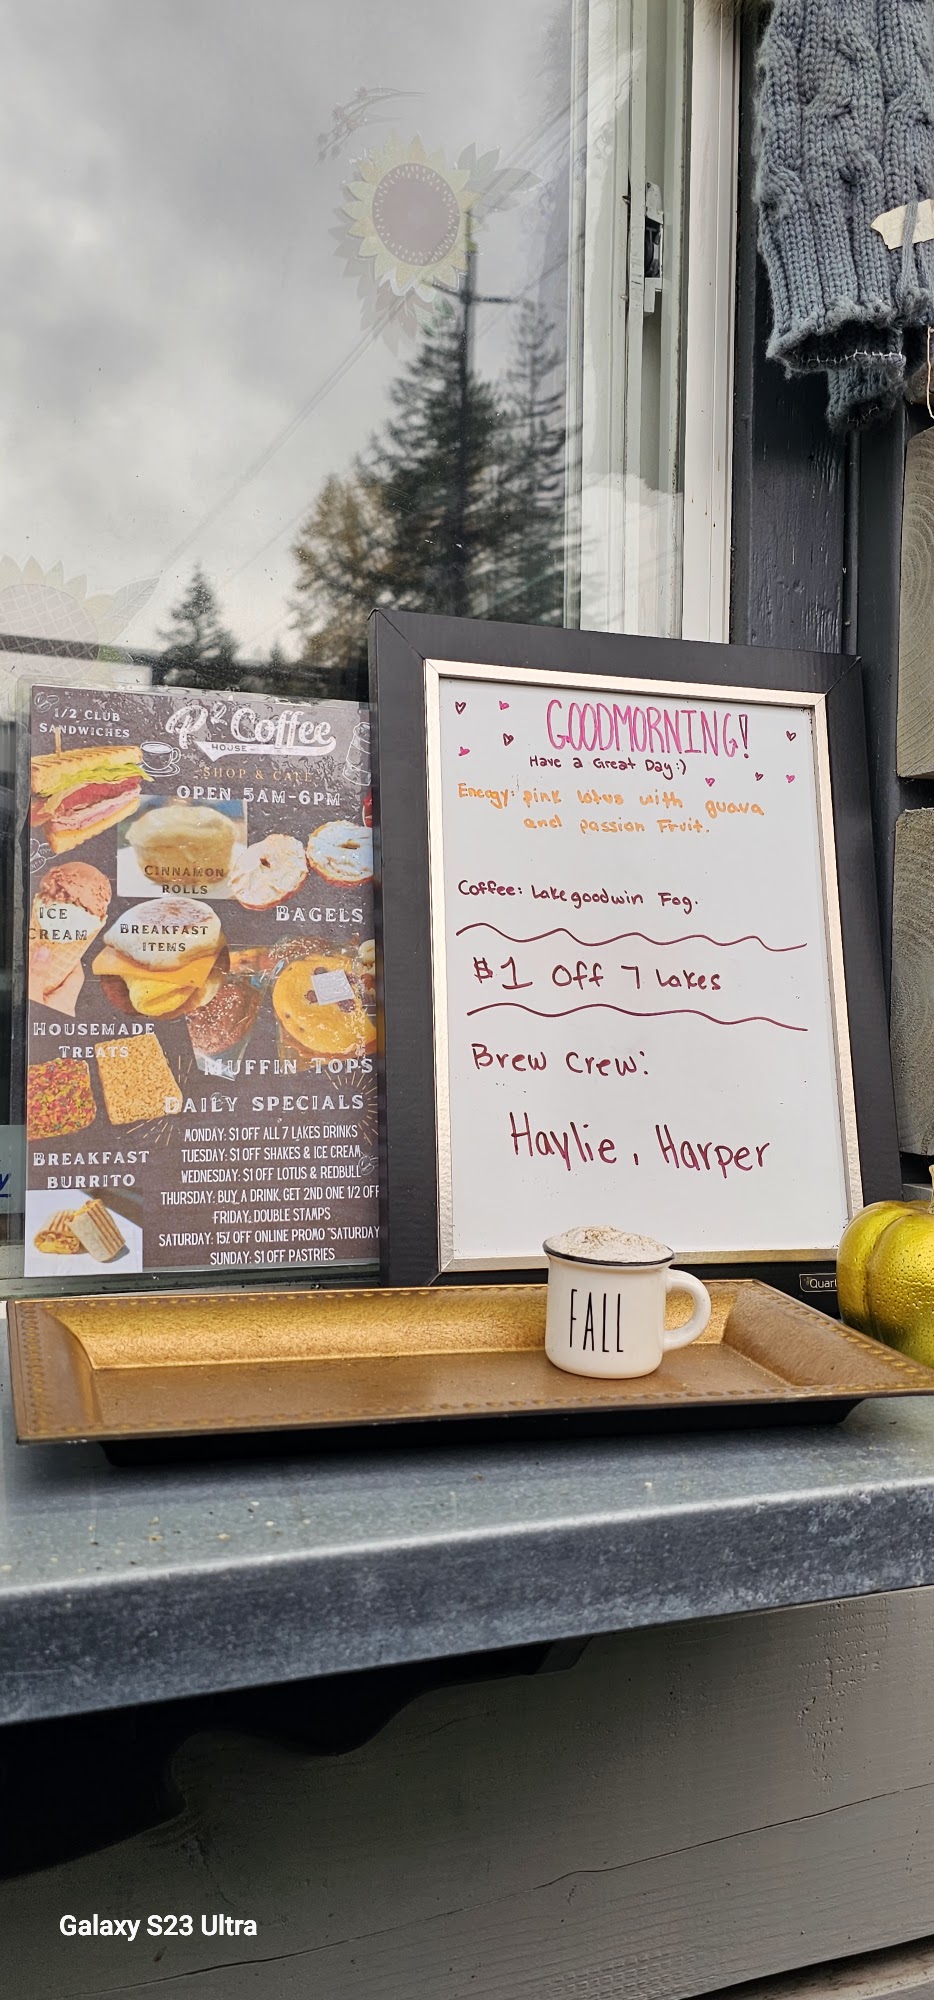 1/2 CLUB
SANDWICHES
R² Coffee
HOUSE
SHOP & CAFE
OPEN 5AM-6PM
CINNAMON
ROLLS
BAGELS
ICE
CREAM
BREAKFAST
ITEMS
HOUSEMADE
TREATS
MUFFIN TOPS
DAILY SPECIALS
MONDAY: $1 OFF ALL 7 LAKES DRINKS
TUESDAY: $1 OFF SHAKES & ICE CREAM
WEDNESDAY: $1 OFF LOTUS & REDBULL
THURSDAY: BUY A DRINK, GET 2ND ONE 1/2 OFF
FRIDAY: DOUBLE STAMPS
SATURDAY: 15% OFF ONLINE PROMO "SATURDAY
SUNDAY: $1 OFF PASTRIES
BREAKFAST
BURRITO
GOODMORNING!
Have a Great Day:)
Energy: pink lotus with guava
and passion Fruit.
Coffee: Lakegoodwin Fog.
$1 Off 7 Lakes
Brew Crew:
Haylie, Harper
Quart
FALL
Galaxy S23 Ultra